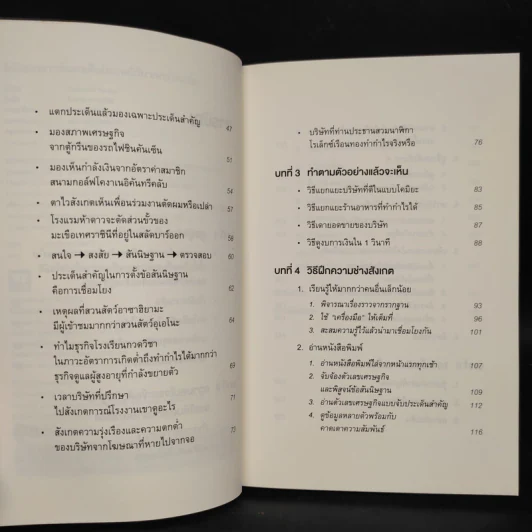 • แตกประเด็นแล้วมองเฉพาะประเด็นสำคัญ 47
• มองสภาพเศรษฐกิจ
จากตู้กรีนของรถไฟชินคันเซ็น 51
• มองเห็นกำลังเงินจากอัตราค่าสมาชิก
สนามกอล์ฟโคงาเนอิคันทรีคลับ 54
• ตาไวสังเกตเห็นเพื่อนร่วมงานตัดผมหรือเปล่า 57
• โรงแรมห้าดาวจะตัดส่วนขั้วของ
มะเขือเทศราชินีที่อยู่ในสลัดบาร์ออก 58
• สนใจ → สงสัย → สันนิษฐาน → ตรวจสอบ 60
• ประเด็นสำคัญในการตั้งข้อสันนิษฐาน
คือการเชื่อมโยง 62
• เหตุผลที่สวนสัตว์อาซาฮิยามะ
มีผู้เข้าชมมากกว่าสวนสัตว์อุเอโนะ 64
• ทำไมธุรกิจโรงเรียนกวดวิชา
ในภาวะอัตราการเกิดต่ำถึงทำกำไรได้มากกว่า
ธุรกิจดูแลผู้สูงอายุที่กำลังขยายตัว 69
• เวลาบริษัทที่ปรึกษา
ไปสังเกตการณ์โรงงานเขาดูอะไร 71
• สังเกตความรุ่งเรืองและความตกต่ำ
ของบริษัทจากโฆษณาที่หายไปจากจอ 73
• บริษัทที่ท่านประธานสวมนาฬิกา
โรเล็กซ์เรือนทองทำกำไรจริงหรือ 76
บทที่ 3 ทำตามตัวอย่างแล้วจะเห็น
• วิธีแยกแยะบริษัทที่ดีในแบบโคมิยะ 83
• วิธีแยกแยะร้านอาหารที่ทำกำไรได้ 85
• วิธีเดายอดขายของบริษัท 87
• วิธีดูงบการเงินใน 1 วินาที 88
บทที่ 4 วิธีฝึกความช่างสังเกต
1. เรียนรู้ให้มากกว่าคนอื่นเล็กน้อย
1. พิจารณาเรื่องราวจากรากฐาน 93
2. ใช้ "เครื่องมือ" ให้เต็มที่ 96
3. สะสมความรู้ไว้แล้วนำมาเชื่อมโยงกัน 101
2. อ่านหนังสือพิมพ์
1. อ่านหนังสือพิมพ์ไล่จากหน้าแรกทุกเช้า 107
2. จับจ้องตัวเลขเศรษฐกิจ
และพิสูจน์ข้อสันนิษฐาน 109
3. อ่านตัวเลขเศรษฐกิจแบบจับประเด็นสำคัญ 112
4. ดูข้อมูลหลายตัวพร้อมกับ
คาดเดาความสัมพันธ์ 116